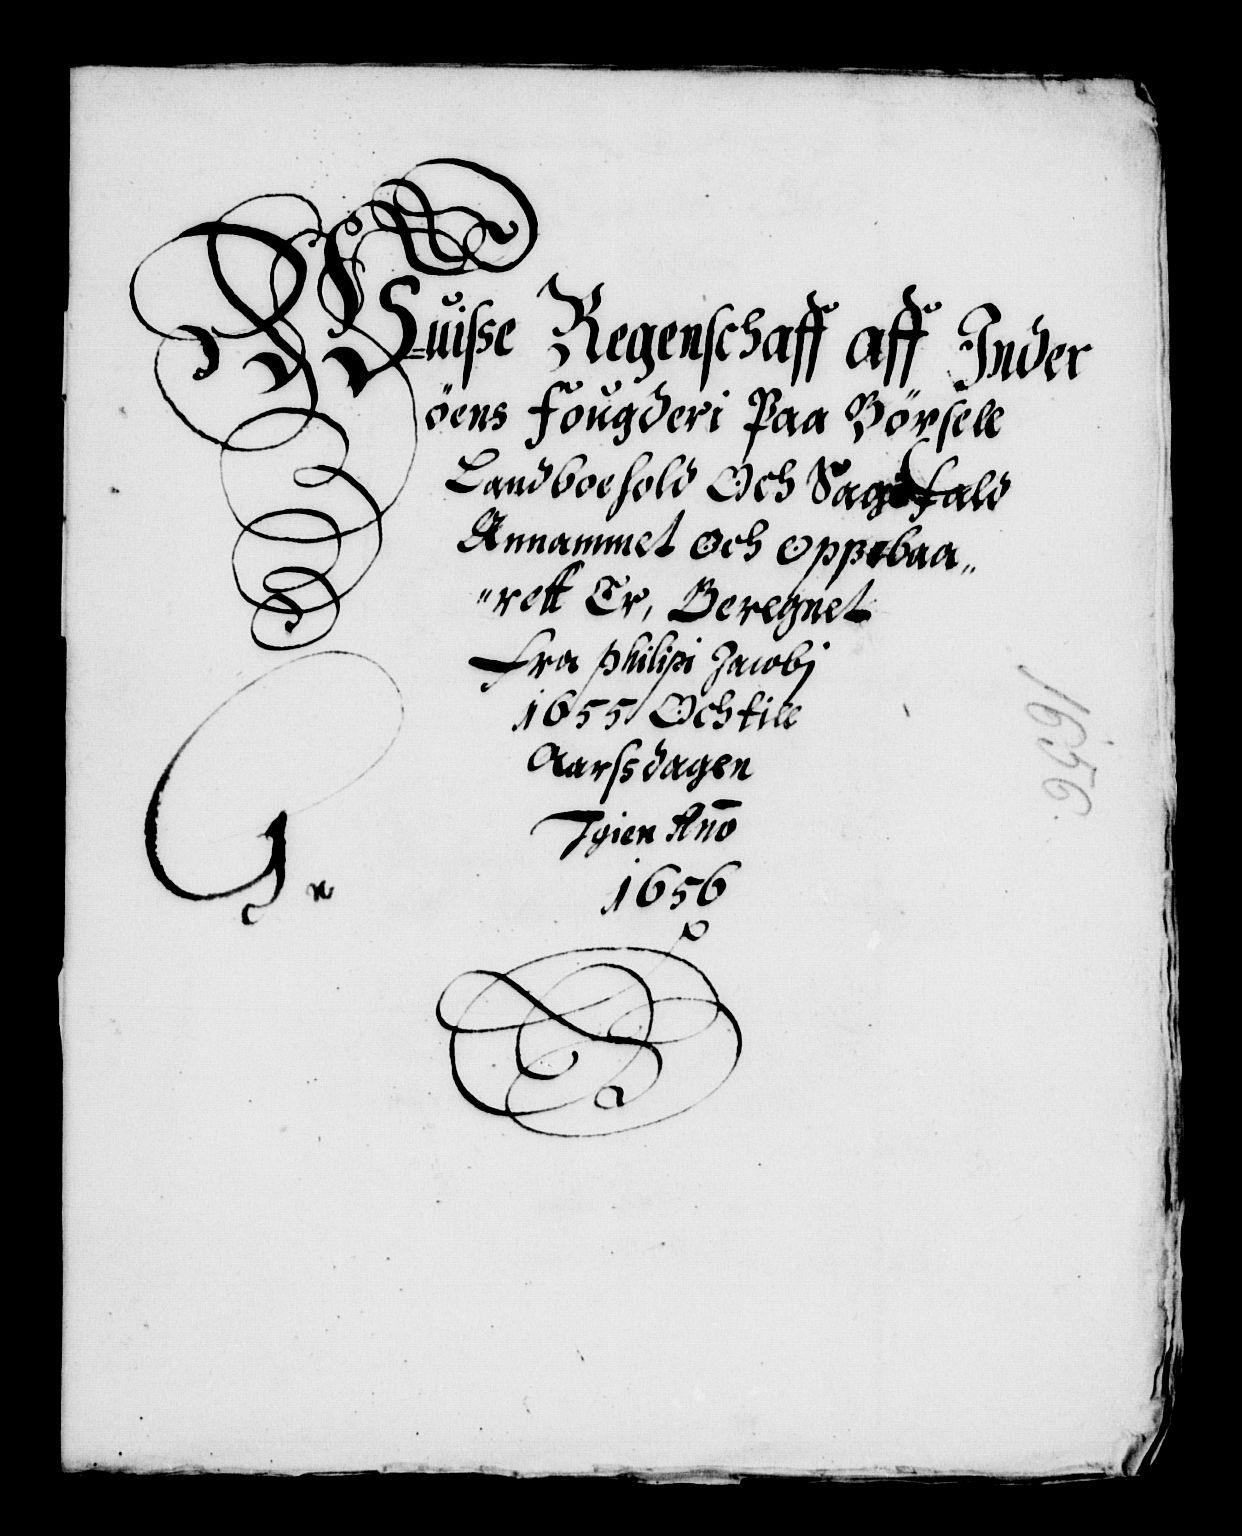 Wuisse Regenschaff aff Inder
öens fougderi Paa Börsell
Landboehold Och Sagefald
Annammet och oppebaa„
„rett Er, Beregnet
fra philipi Jacobj
1655 Och till
Aarssdagen
Igien Ano
1656
1656